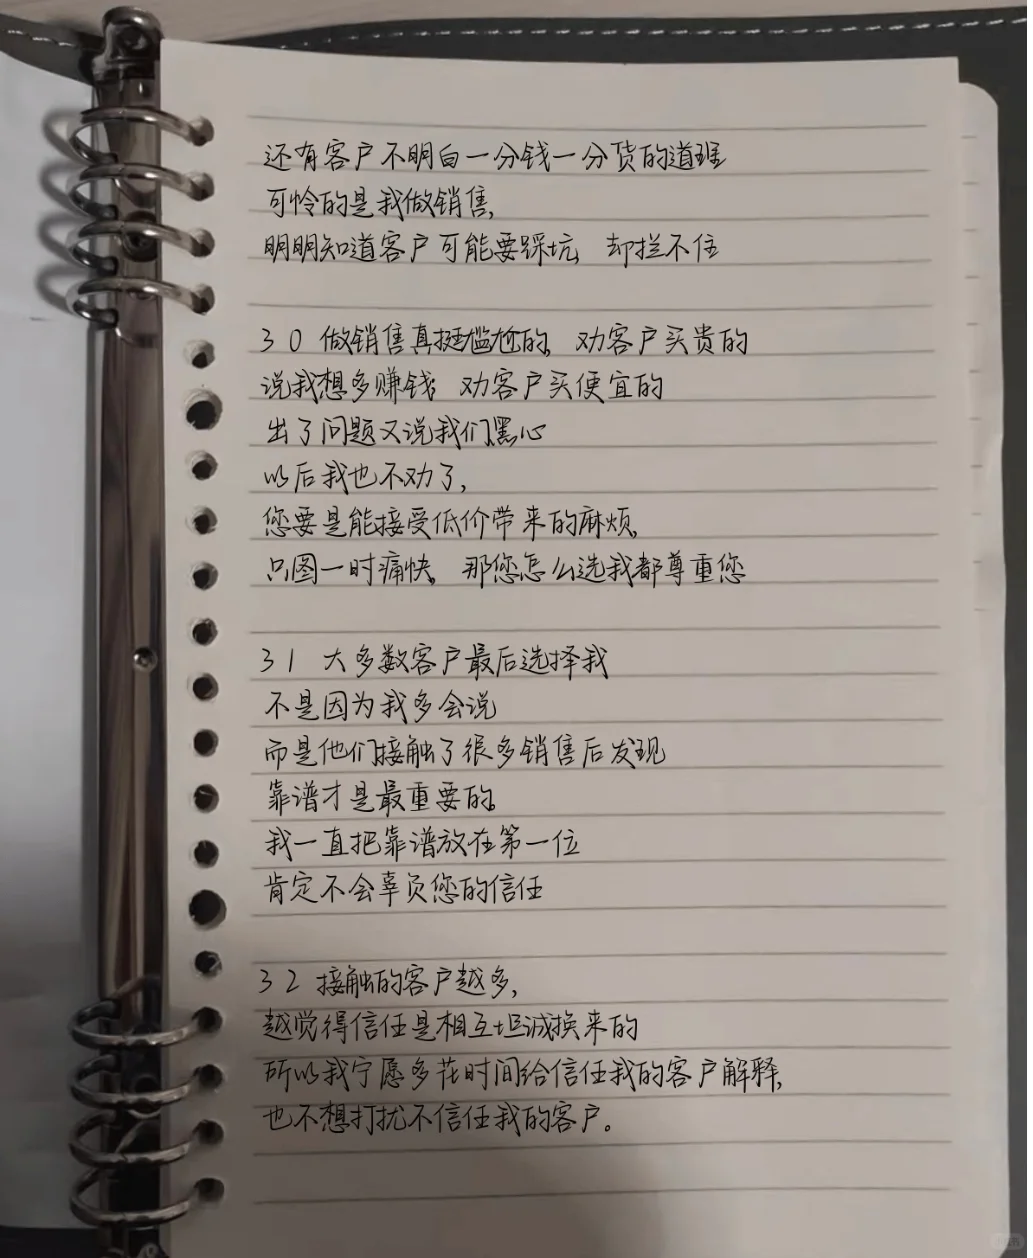 还有客户不明白一分钱一分货的道理
可怜的是我做销售,
明明知道客户可能要踩坑, 却拦不住
30 做销售真挺尴尬的, 劝客户买贵的
说我想多赚钱; 劝客户买便宜的
出了问题又说我们黑心
以后我也不劝了,
您要是能接受低价带来的麻烦,
只图一时痛快, 那您怎么选我都尊重您
31 大多数客户最后选择我
不是因为我多会说
而是他们接触了很多销售后发现
靠谱才是最重要的,
我一直把靠谱放在第一位
肯定不会辜负您的信任
32 接触的客户越多,
越觉得信任是相互坦诚换来的
所以我宁愿多花时间给信任我的客户解释,
也不想打扰不信任我的客户。